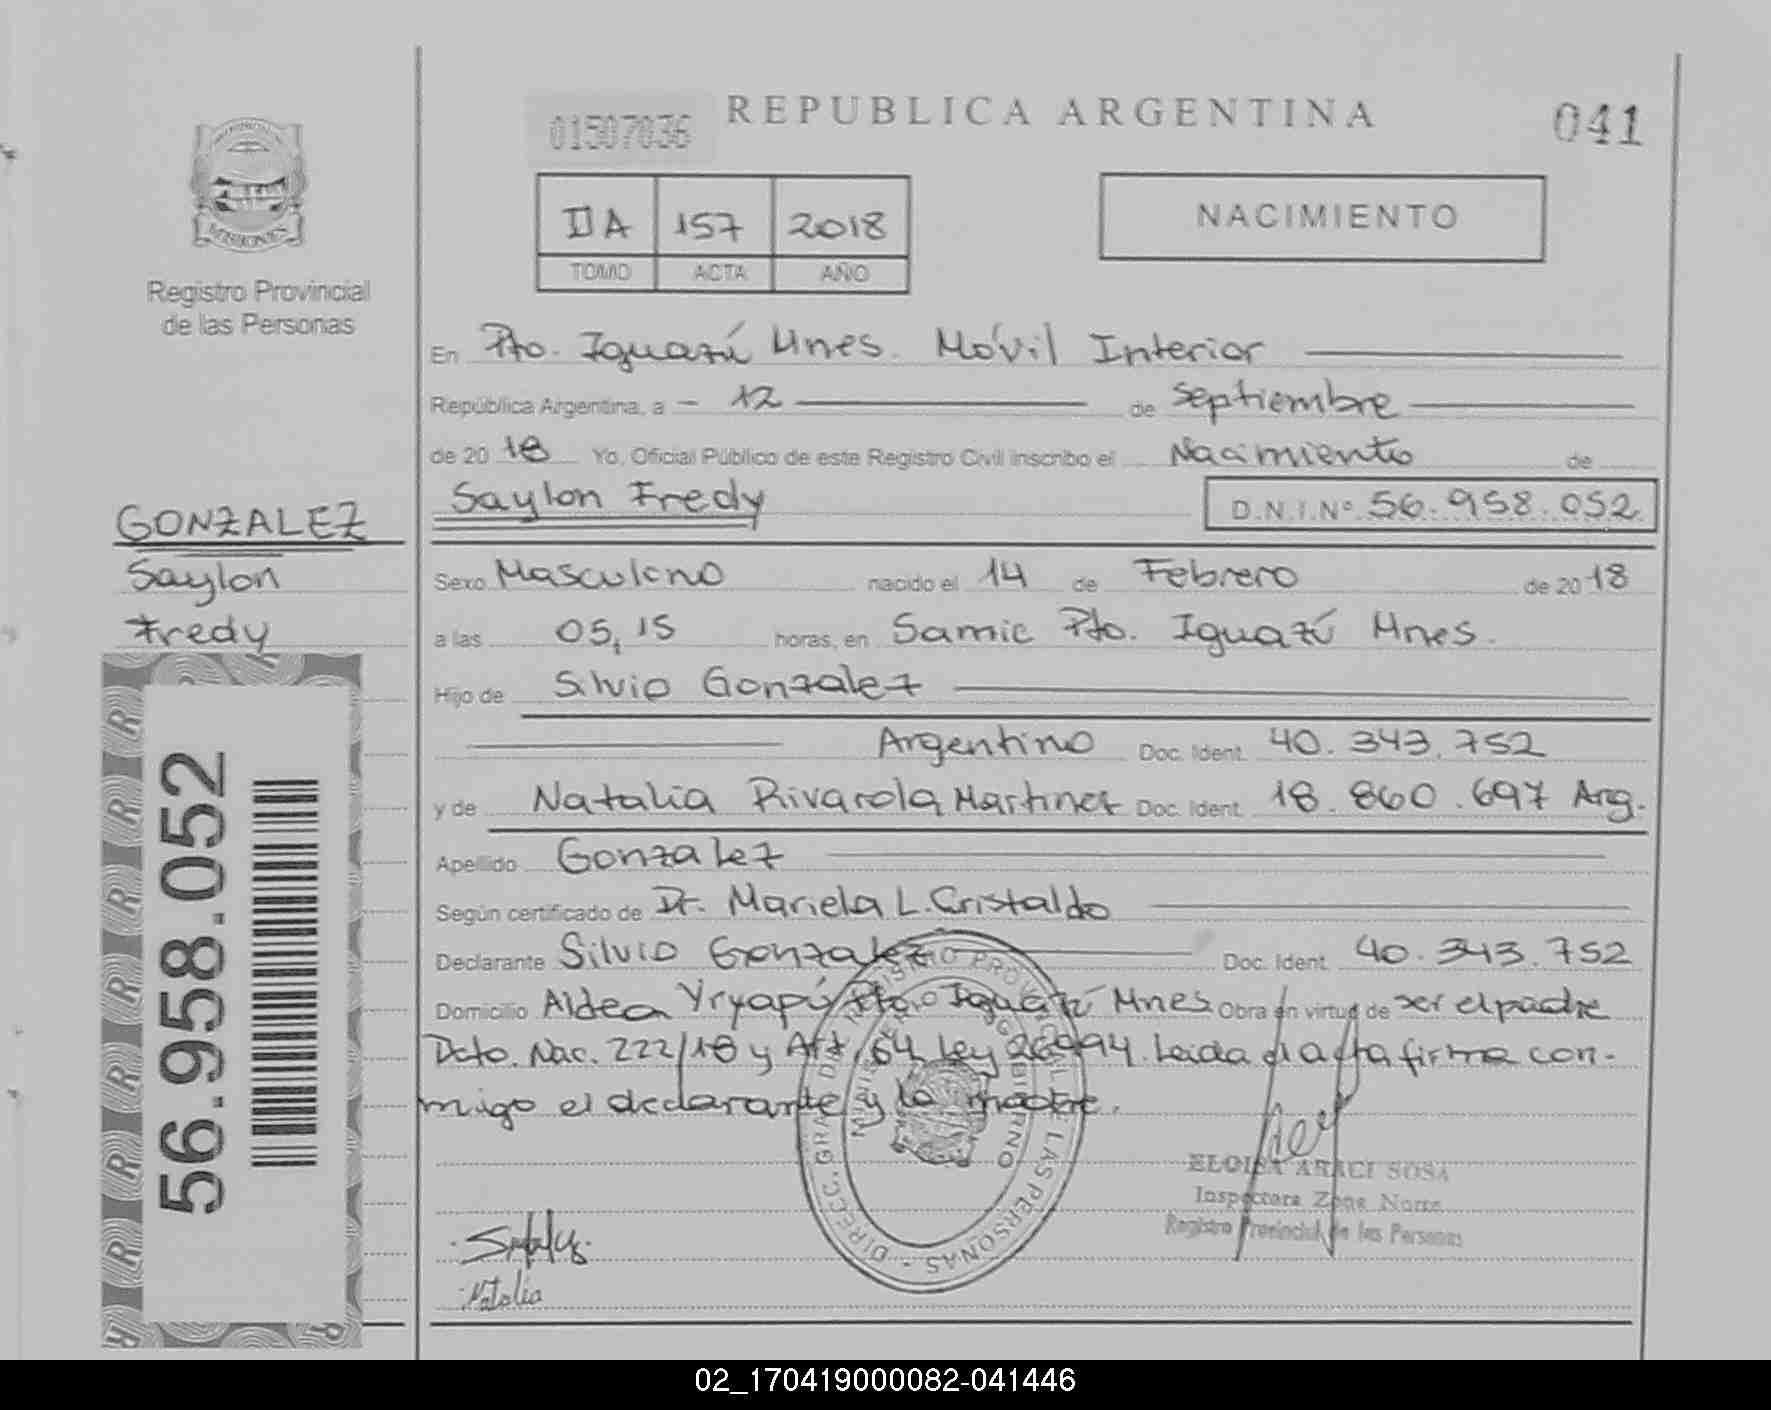 REPUBLICA ARGENTINA
01507036
041
MISIONES
Registro Provincial
de las Personas
II A 157 2018
TOMO ACTA AÑO
NACIMIENTO
En Pto. Iguazú Mnes. Móvil Interior
República Argentina, a - 12 de septiembre
de 20 18 Yo, Oficial Público de este Registro Civil inscribo el Nacimiento de
Saylon Fredy D.N.I.Nº 56.958.052
GONZALEZ
Saylon
Fredy
Sexo Masculino nacido el 14 de Febrero de 20 18
a las 05,15 horas, en Samic Pto. Iguazú Mnes.
Hijo de Silvio Gonzalez
Argentino Doc. Ident. 40.343.752
y de Natalia Rivarola Martinez Doc. Ident. 18.860.697 Arg.
Apellido Gonzalez
Según certificado de Dr. Mariela L. Cristaldo
Declarante Silvio Gonzalez Doc. Ident. 40.343.752
Domicilio Aldea Yryapú Pto. Iguazú Mnes Obra en virtud de ser el padre
Dcto. Nac. 222/18 y Art. 64 Ley 26994. Leida el acta firma con-
migo el declarante y la madre.
56.958.052
DIRECC. GRAL. DEL REGISTRO PROVINCIAL DE LAS PERSONAS
ELOISA ARACI SOSA
Inspectora Zona Norte
Registro Provincial de las Personas
Natalia
02_170419000082-041446